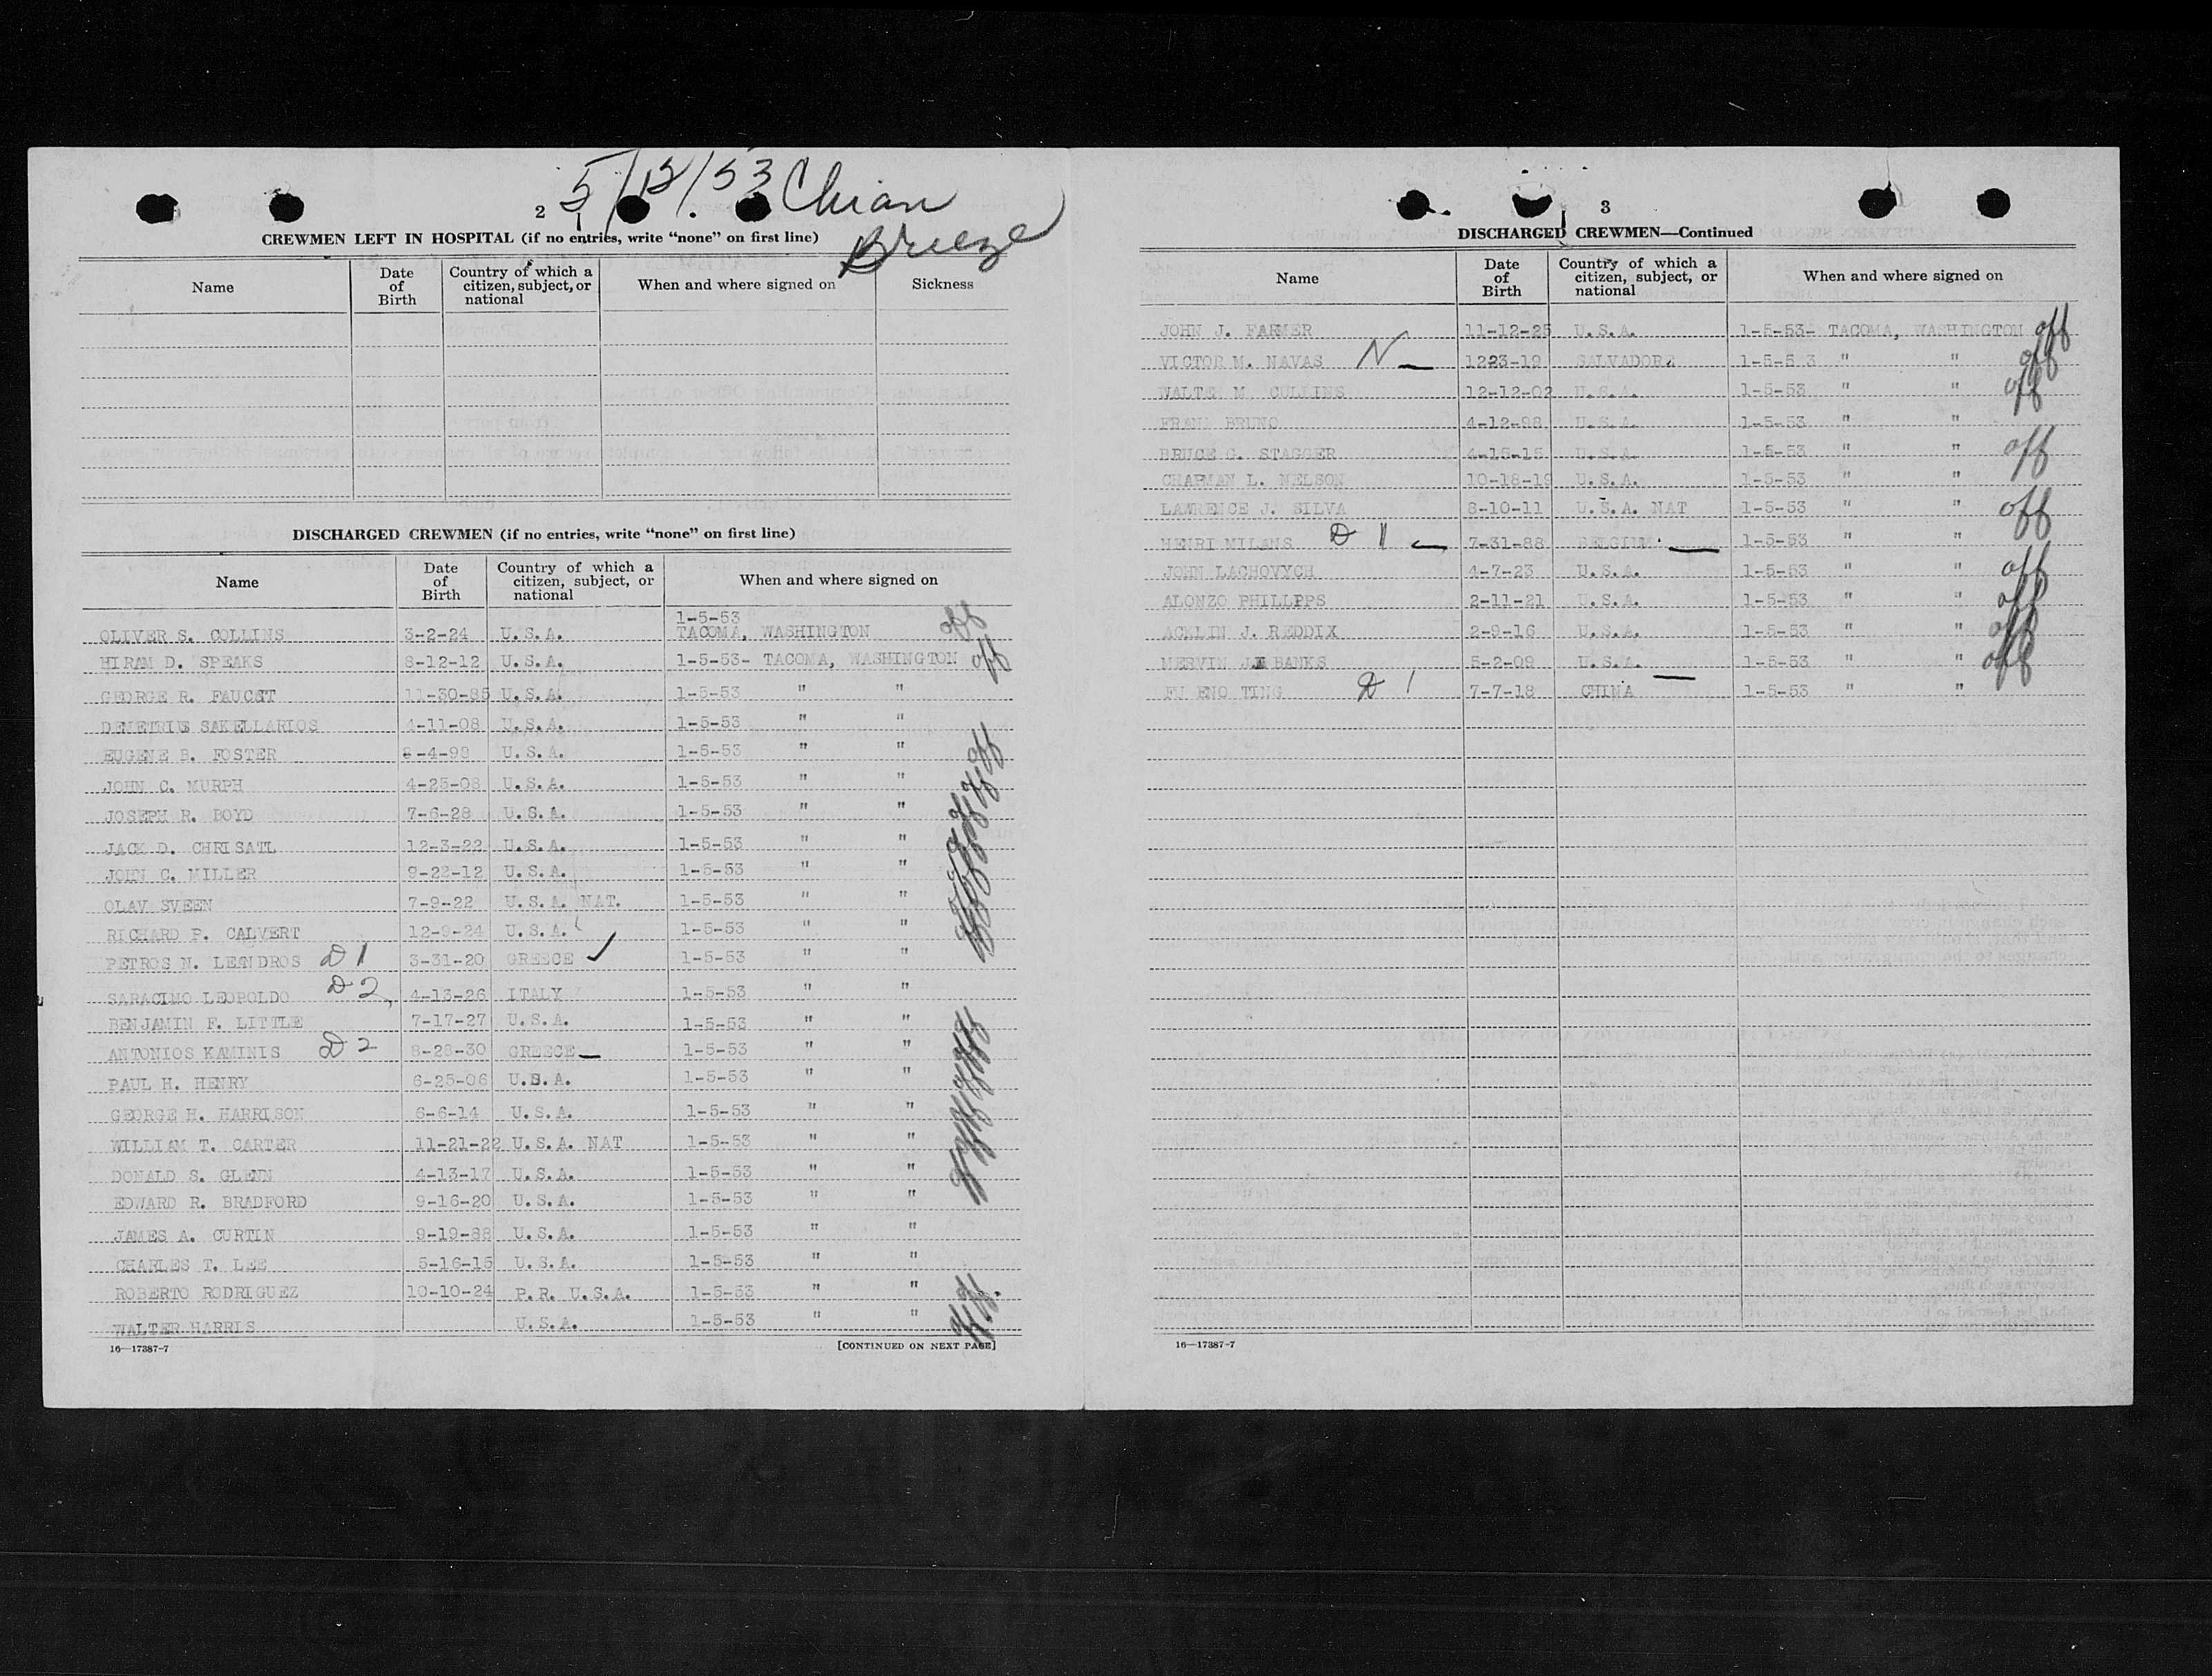 5/12/53 Chian
Breeze
2
CREWMEN LEFT IN HOSPITAL (if no entries, write "none" on first line)
Name Date of Birth Country of which a citizen, subject, or national When and where signed on Sickness
DISCHARGED CREWMEN (if no entries, write "none" on first line)
Name Date of Birth Country of which a citizen, subject, or national When and where signed on
1-5-53
OLIVER S. COLLINS 3-2-24 U.S.A. TACOMA, WASHINGTON off
HIRAM D. SPEAKS 8-12-12 U.S.A. 1-5-53- TACOMA, WASHINGTON off
GEORGE R. FAUCET 11-30-85 U.S.A. 1-5-53 " "
DEMETRIUS SAKELLARIOS 4-11-08 U.S.A. 1-5-53 " "
EUGENE B. FOSTER 8-4-98 U.S.A. 1-5-53 " " off
JOHN C. MURPH 4-25-08 U.S.A. 1-5-53 " " off
JOSEPH R. BOYD 7-6-28 U.S.A. 1-5-53 " " off
JACK D. CHRISATL 12-3-22 U.S.A. 1-5-53 " " off
JOHN C. MILLER 9-22-12 U.S.A. 1-5-53 " " off
OLAV SVEEN 7-9-22 U.S.A. NAT. 1-5-53 " " off
RICHARD P. CALVERT 12-9-24 U.S.A. 1-5-53 " " off
PETROS N. LEANDROS D 1 3-31-20 GREECE ✓ 1-5-53 " "
SARACINO LEOPOLDO D 2 4-13-26 ITALY 1-5-53 " "
BENJAMIN F. LITTLE 7-17-27 U.S.A. 1-5-53 " " off
ANTONIOS KAMINIS D 2 8-28-30 GREECE 1-5-53 " "
PAUL H. HENRY 6-25-06 U.S.A. 1-5-53 " " off
GEORGE H. HARRISON 6-6-14 U.S.A. 1-5-53 " " off
WILLIAM T. CARTER 11-21-22 U.S.A. NAT 1-5-53 " " off
DONALD S. GLENN 4-13-17 U.S.A. 1-5-53 " " off
EDWARD R. BRADFORD 9-16-20 U.S.A. 1-5-53 " " off
JAMES A. CURTIN 9-19-88 U.S.A. 1-5-53 " "
CHARLES T. LEE 5-16-15 U.S.A. 1-5-53 " "
ROBERTO RODRIGUEZ 10-10-24 P.R. U.S.A. 1-5-53 " " off
WALTER HARRIS U.S.A. 1-5-53 " " off
16—17387-7 [CONTINUED ON NEXT PAGE]
3
DISCHARGED CREWMEN—Continued
Name Date of Birth Country of which a citizen, subject, or national When and where signed on
JOHN J. FARMER 11-12-25 U.S.A. 1-5-53- TACOMA, WASHINGTON off
VICTOR M. NAVAS N 1223-19 SALVADORE 1-5-53 " " off
WALTE M. COLLINS 12-12-02 U.S.A. 1-5-53 " " off
FRANK BRUNO 4-12-98 U.S.A. 1-5-53 " "
BRUCE G. STAGGER 4-15-15 U.S.A. 1-5-53 " " off
CHAPMAN L. NELSON 10-18-19 U.S.A. 1-5-53 " "
LAWRENCE J. SILVA 8-10-11 U.S.A. NAT 1-5-53 " " off
HENRI MILANS D 1 7-31-88 BELGIUM 1-5-53 " "
JOHN LACHOVYCH 4-7-23 U.S.A. 1-5-53 " " off
ALONZO PHILLPPS 2-11-21 U.S.A. 1-5-53 " " off
ACKLIN J. REDDIX 2-9-16 U.S.A. 1-5-53 " " off
MERVIN J. BANKS 5-2-09 U.S.A. 1-5-53 " " off
FU ENO TING D 1 7-7-18 CHINA 1-5-53 " "
16—17387-7